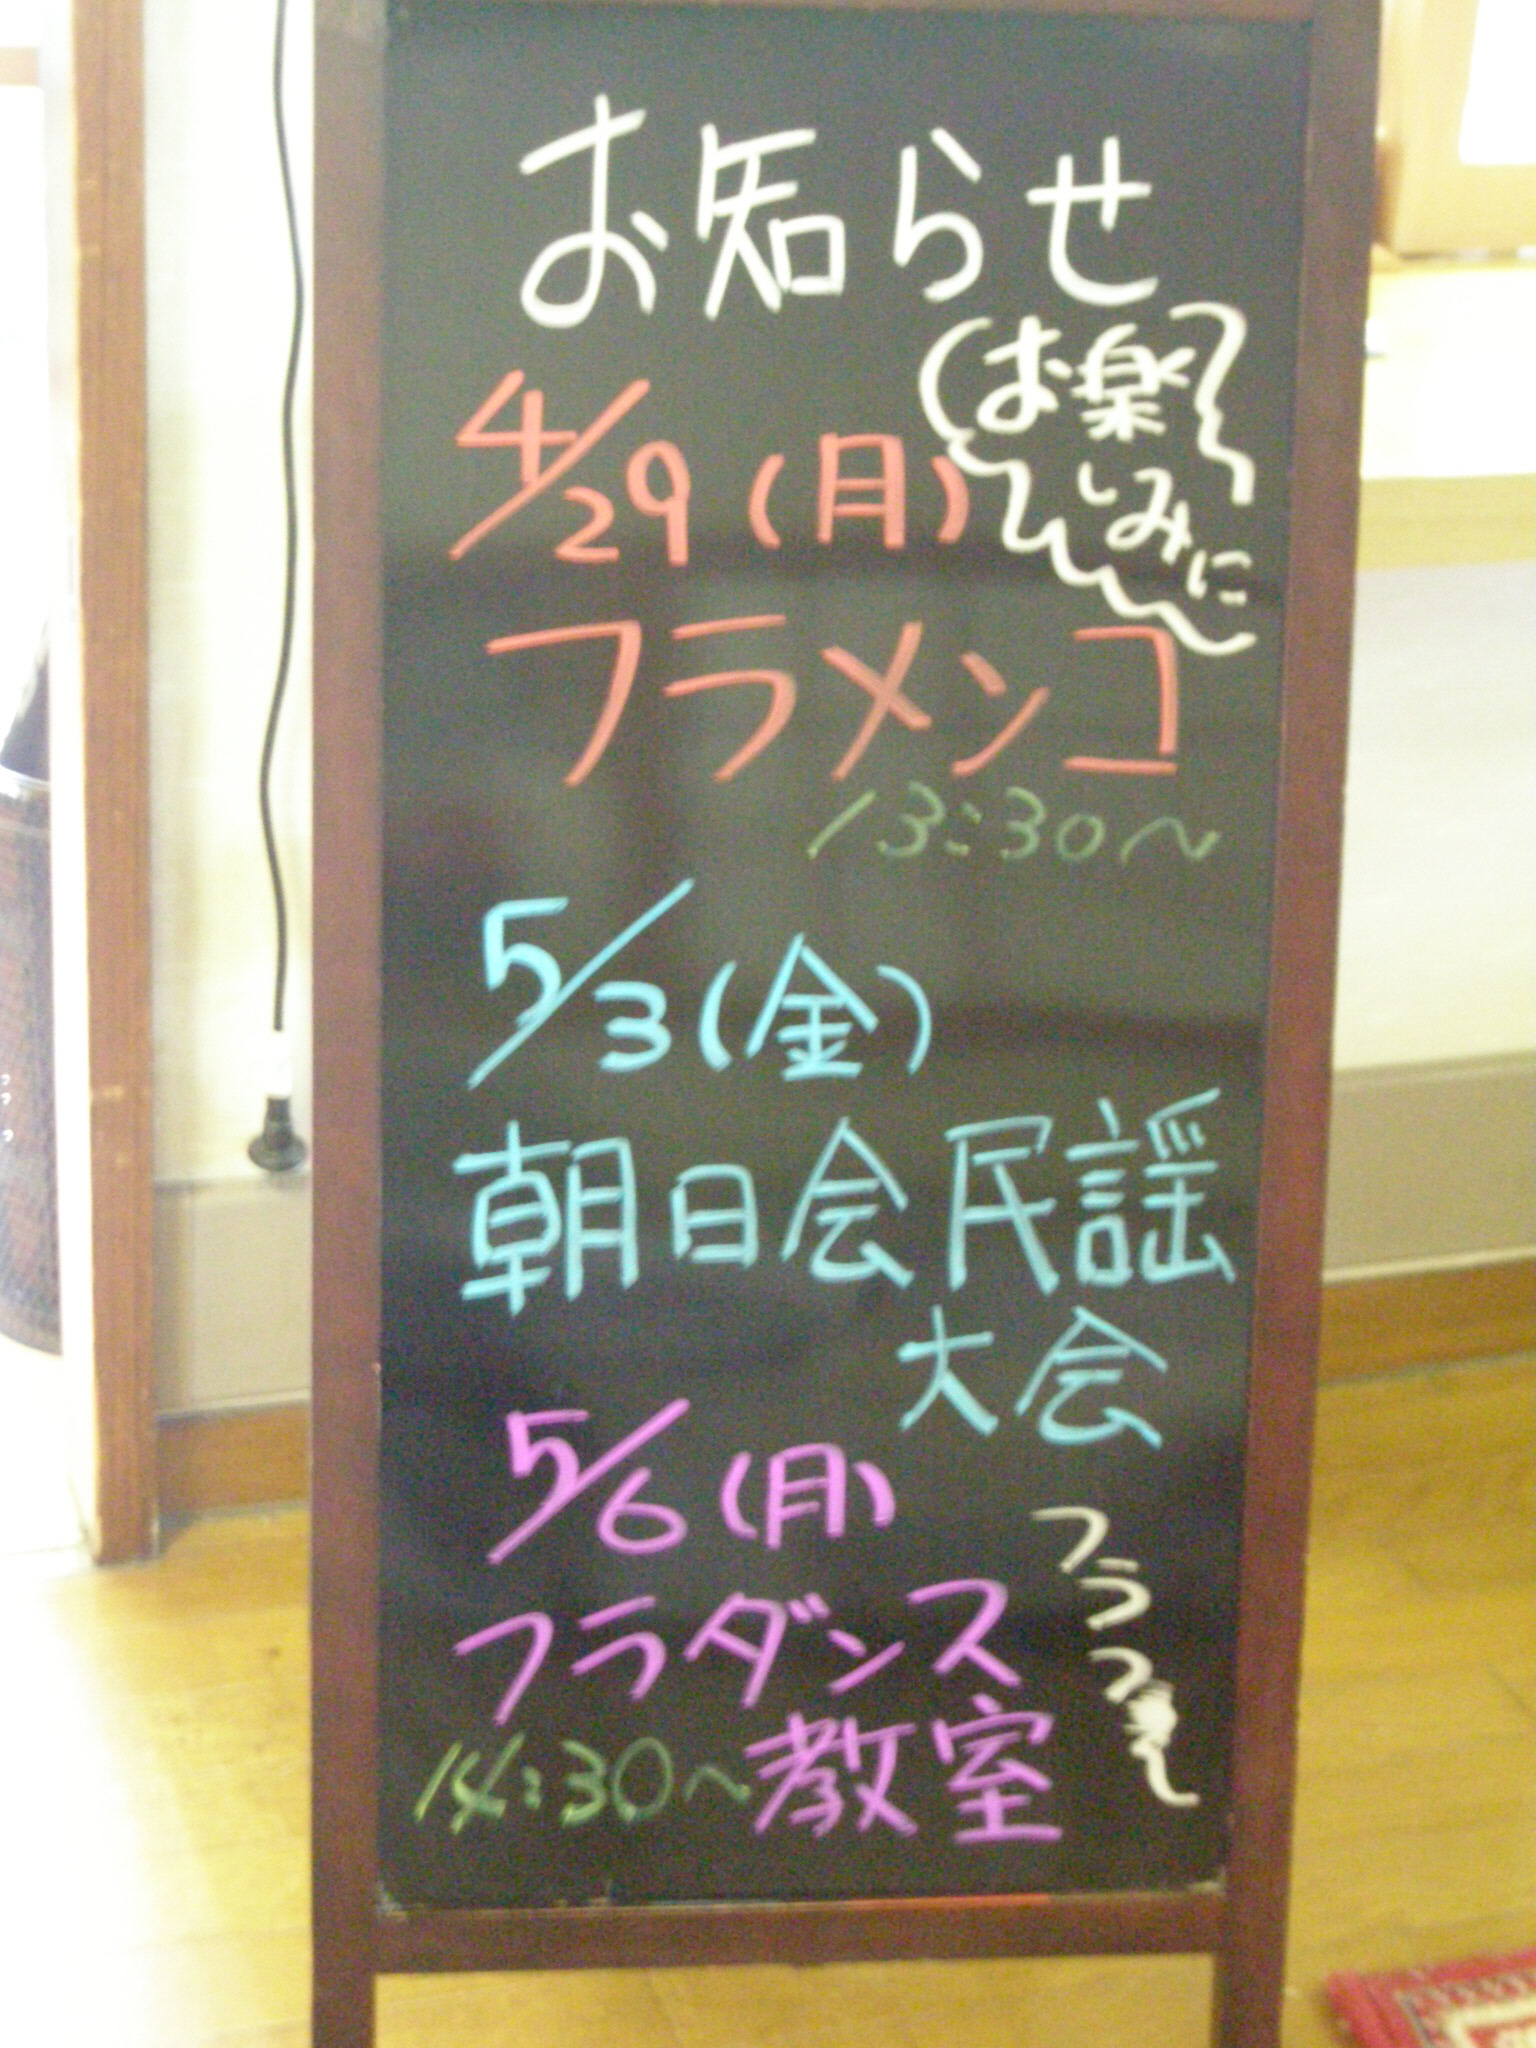 お知らせ
お楽
しみに
4/29(月)
フラメンコ
13:30〜
5/3(金)
朝日会民謡
大会
5/6(月)
フラダンス
教室
14:30〜
フラフラ